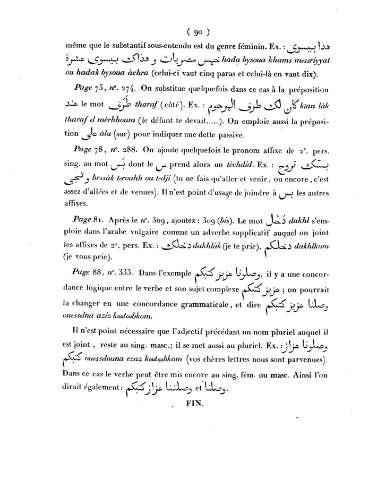 ( 90 )
même que le substantif sous-entendu est du genre féminin. Ex. : هذا بيسوى
خمس مصريات و هذاك بيسوى عشرة hada bysoua khams messriyyat
ou hadak bysoua âchra (celui-ci vaut cinq paras et celui-là en vaut dix).
Page 75, n°. 274. On substitue quelquefois dans ce cas à la préposition
عند le mot طرف tharaf (côté). Ex. : كان لك طرف المرحوم kian lak
tharaf el merhhoum (le défunt te devait.....). On emploie aussi la préposi-
tion على âla (sur) pour indiquer une dette passive.
Page 78, n°. 288. On ajoute quelquefois le pronom affixe de 2e. pers.
sing. au mot بس dont le س prend alors un téchdid. Ex. : بسك تروح
و تجى bessak terouhh ou tedji (tu ne fais qu'aller et venir, ou encore, c'est
assez d'allées et de venues). Il n'est point d'usage de joindre à بس les autres
affixes.
Page 81. Après le n°. 309, ajoutez : 309 (bis). Le mot دخل dakhl s'em-
ploie dans l'arabe vulgaire comme un adverbe supplicatif auquel on joint
les affixes de 2e. pers. Ex. : دخلك dakhlak (je te prie), دخلكم dakhlkom
(je vous prie).
Page 88, n°. 333. Dans l'exemple وصلونا عزيز كتبكم, il y a une concor-
dance logique entre le verbe et son sujet complexe عزيز كتبكم ; on pourrait
la changer en une concordance grammaticale, et dire وصلنا عزيز كتبكم
ouessdna azïz kotoubkom.
Il n'est point nécessaire que l'adjectif précédant un nom pluriel auquel il
est joint, reste au sing. masc.; il se met aussi au pluriel. Ex. : وصلونا عزاز
كتبكم ouessdouna ezaz kotoubkom (vos chères lettres nous sont parvenues).
Dans ce cas le verbe peut être mis encore au sing. fém. ou masc. Ainsi l'on
dirait également : وصلتنا عزاز كتبكم et وصلنا.
FIN.